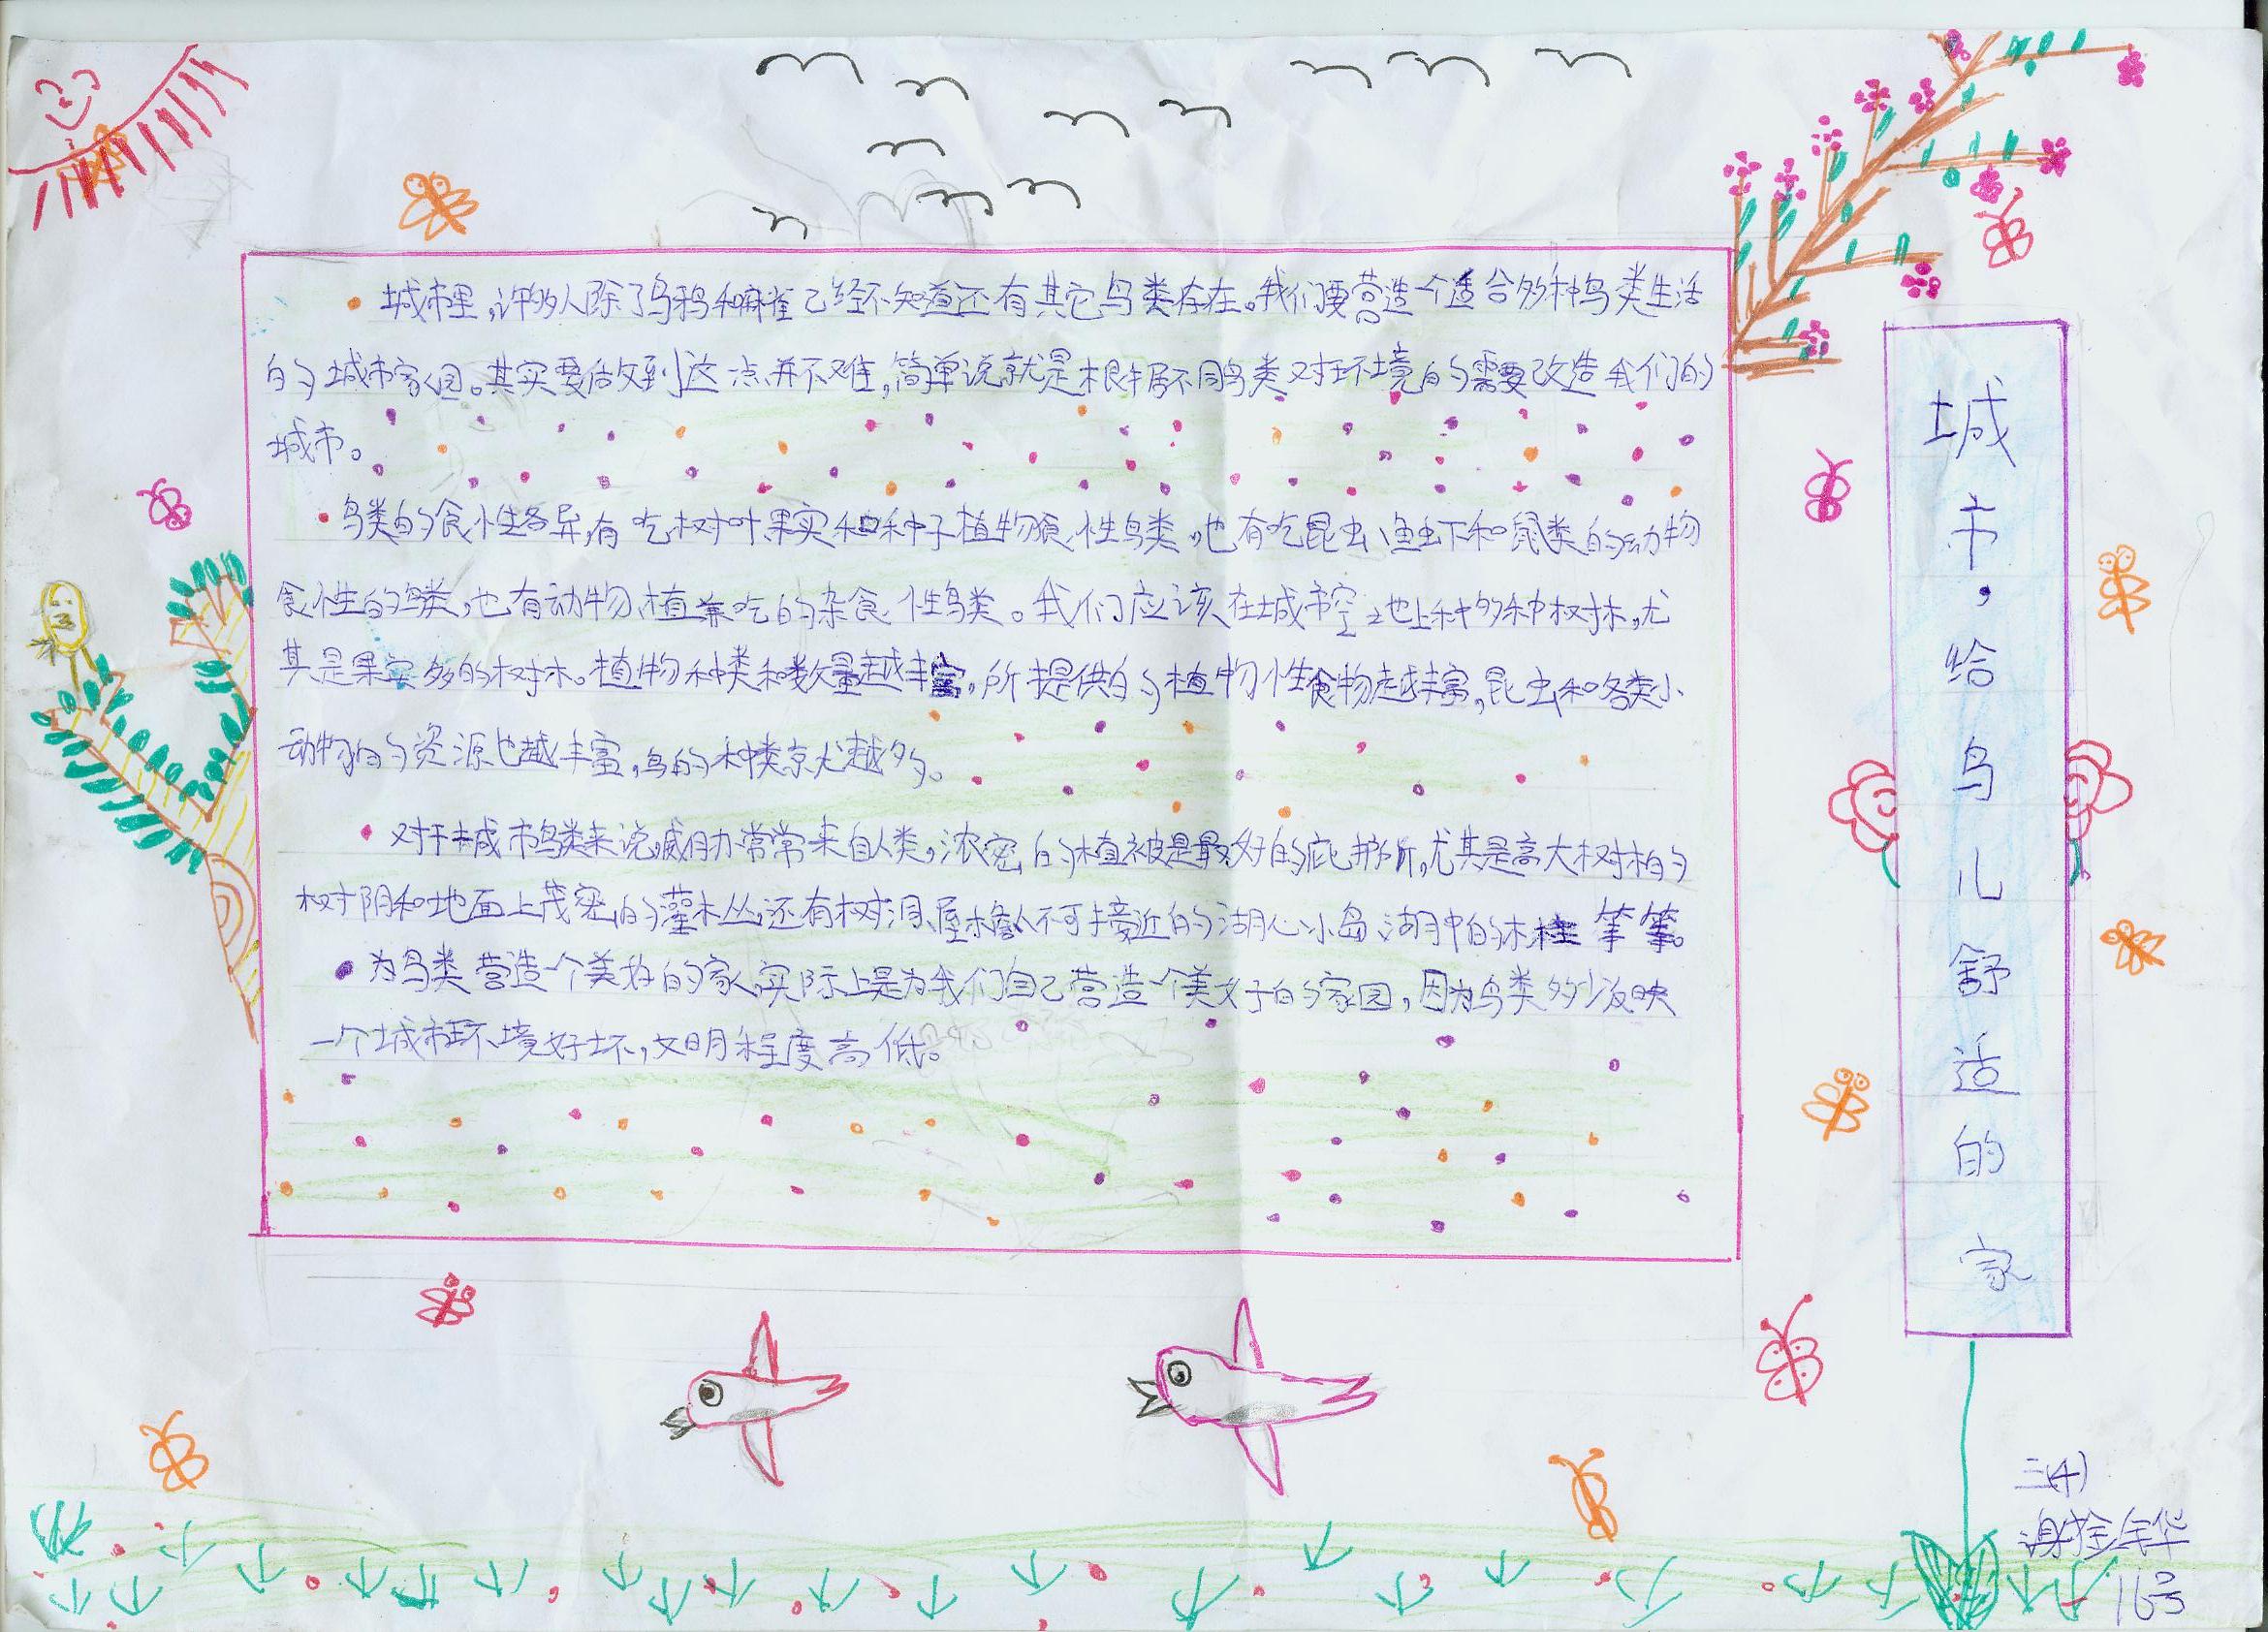 城市,给鸟儿舒适的家
城市里,许多人除了乌鸦和麻雀已经不知道还有其它鸟类存在。我们要营造一个适合多种鸟类生活
的城市家园。其实要做到这点并不难,简单说就是根据不同鸟类对环境的需要改造我们的
城市。
鸟类的食性各异,有吃树叶果实和种子植物食性鸟类,也有吃昆虫、鱼虾和鼠类的动物
食性的鸟类,也有动物、植兼吃的杂食性鸟类。我们应该在城市空地上种多种树木,尤
其是果实多的树木。植物种类和数量越丰富,所提供的植物性食物越丰富,昆虫和各类小
动物的资源也越丰富,鸟的种类就越多。
对于城市鸟类来说,威胁常常来自人类,浓密的植被是最好的庇护所,尤其是高大树木的
树阴和地面上茂密的灌木丛,还有树洞、屋檐、人不可接近的湖心小岛、湖中的木桩等等。
为鸟类营造一个美好的家,实际上是为我们自己营造一个美好的家园,因为鸟类多少反映
一个城市环境好坏,文明程度高低。
三(4)
谢 华
16号